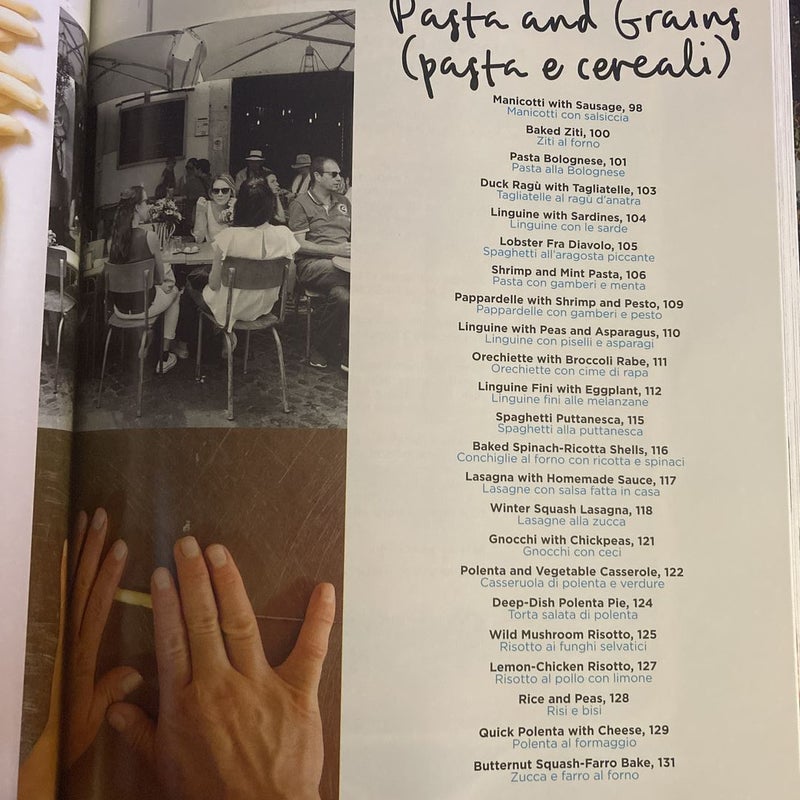 Pasta and Grains
(pasta e cereali)
Manicotti with Sausage, 98
Manicotti con salsiccia
Baked Ziti, 100
Ziti al forno
Pasta Bolognese, 101
Pasta alla Bolognese
Duck Ragù with Tagliatelle, 103
Tagliatelle al ragù d'anatra
Linguine with Sardines, 104
Linguine con le sarde
Lobster Fra Diavolo, 105
Spaghetti all'aragosta piccante
Shrimp and Mint Pasta, 106
Pasta con gamberi e menta
Pappardelle with Shrimp and Pesto, 109
Pappardelle con gamberi e pesto
Linguine with Peas and Asparagus, 110
Linguine con piselli e asparagi
Orechiette with Broccoli Rabe, 111
Orechiette con cime di rapa
Linguine Fini with Eggplant, 112
Linguine fini alle melanzane
Spaghetti Puttanesca, 115
Spaghetti alla puttanesca
Baked Spinach-Ricotta Shells, 116
Conchiglie al forno con ricotta e spinaci
Lasagna with Homemade Sauce, 117
Lasagne con salsa fatta in casa
Winter Squash Lasagna, 118
Lasagne alla zucca
Gnocchi with Chickpeas, 121
Gnocchi con ceci
Polenta and Vegetable Casserole, 122
Casseruola di polenta e verdure
Deep-Dish Polenta Pie, 124
Torta salata di polenta
Wild Mushroom Risotto, 125
Risotto ai funghi selvatici
Lemon-Chicken Risotto, 127
Risotto al pollo con limone
Rice and Peas, 128
Risi e bisi
Quick Polenta with Cheese, 129
Polenta al formaggio
Butternut Squash-Farro Bake, 131
Zucca e farro al forno